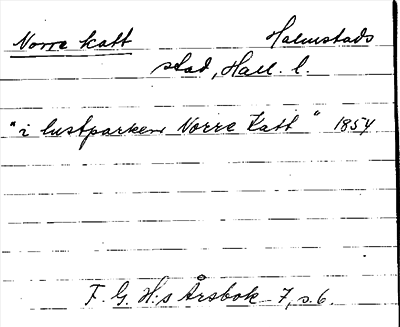 Norre katt Halmstads
stad, Hall. l.
"i lustparken Norre Katt" 1854
F. G. H:s Årsbok 7, s. 6.